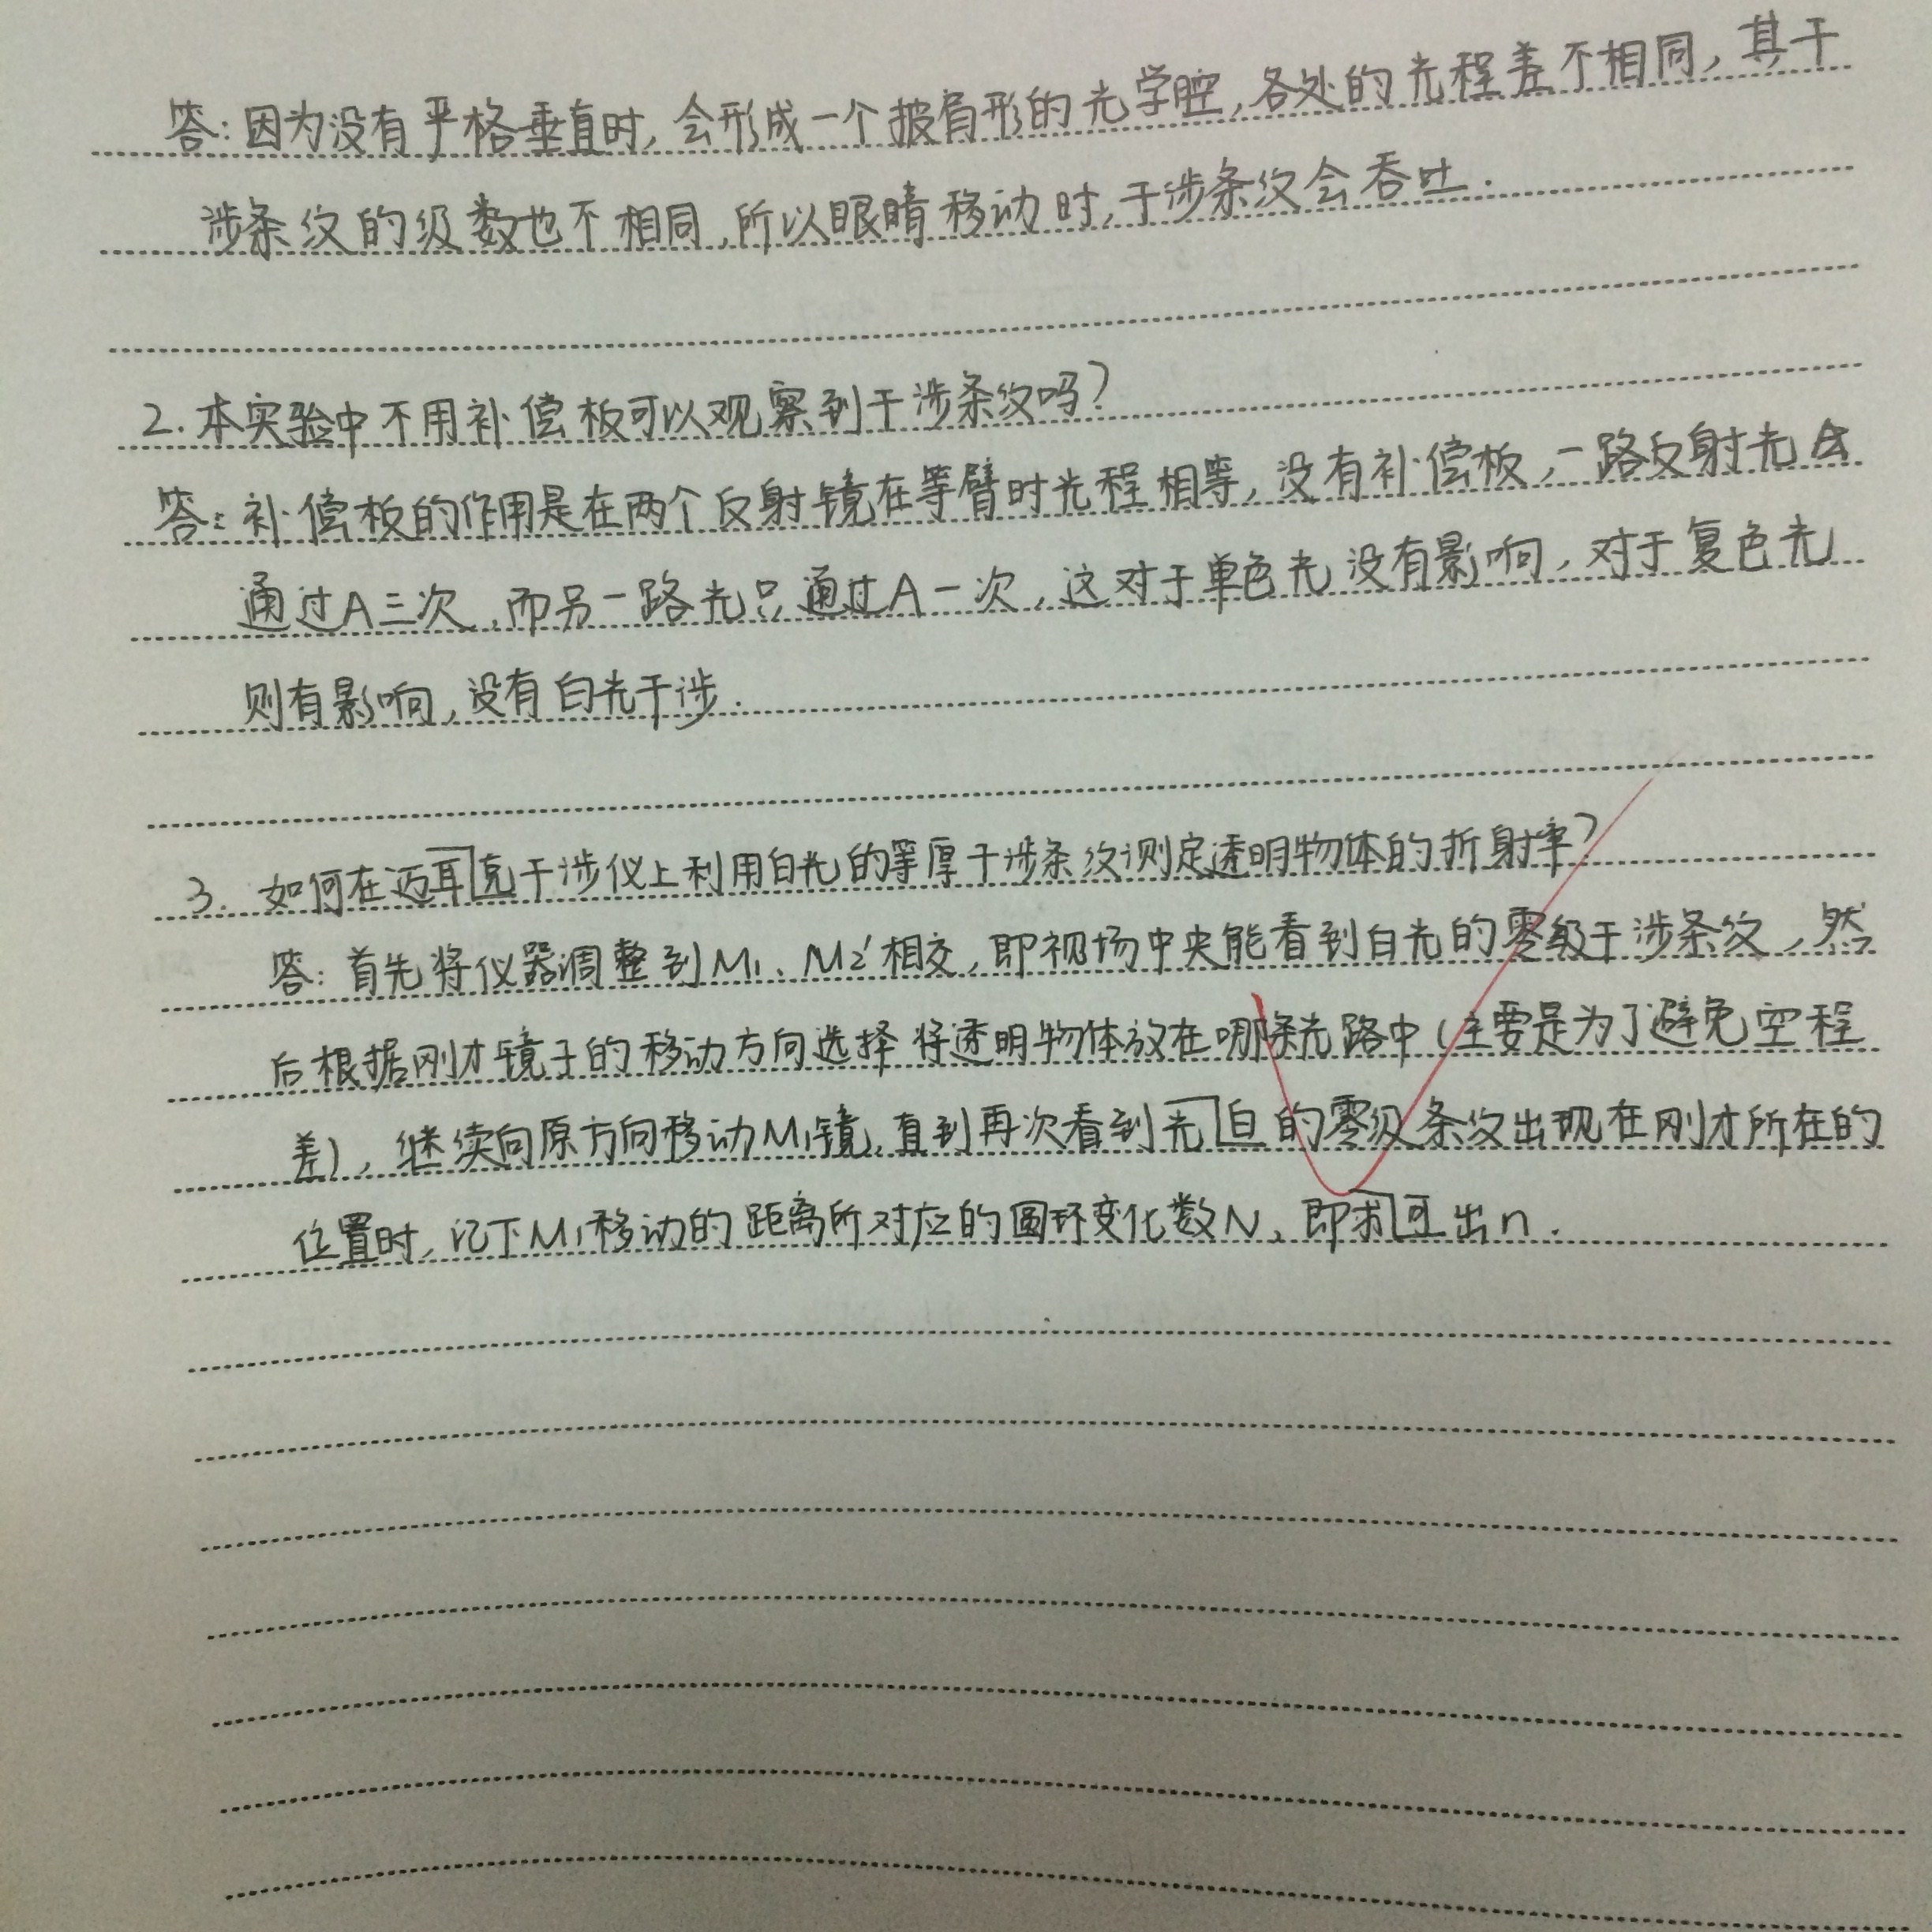 答：因为没有严格垂直时，会形成一个披肩形的光学腔，各处的光程差不相同，其干
涉条纹的级数也不相同，所以眼睛移动时，干涉条纹会吞吐．
2.本实验中不用补偿板可以观察到干涉条纹吗？
答：补偿板的作用是在两个反射镜在等臂时光程相等，没有补偿板，一路反射光会
通过A三次，而另一路光只通过A一次，这对于单色光没有影响，对于复色光
则有影响，没有白光干涉．
3. 如何在迈耳克干涉仪上利用白光的等厚干涉条纹测定透明物体的折射率？
答：首先将仪器调整到M₁、M₂′相交，即视场中央能看到白光的零级干涉条纹，然
后根据刚才镜子的移动方向选择将透明物体放在哪条光路中（主要是为了避免空程
差），继续向原方向移动M₁镜，直到再次看到光白的零级条纹出现在刚才所在的
位置时，记下M₁移动的距离所对应的圆环变化数N，即求可出n．